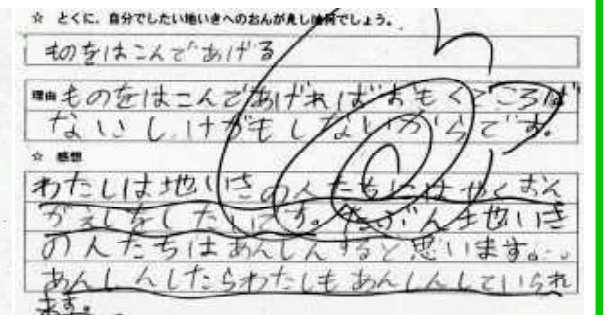 ☆ とくに、自分でしたい地いきへのおんがえしは何でしょう。
ものをはこんであげる
理由 ものをはこんであげればおもくてころば
ないし、けがもしないからです。
☆ 感想
わたしは地いきの人たちにはやくおん
がえしをしたいです。たぶん地いき
の人たちはあんしんすると思います。
あんしんしたらわたしもあんしんしていられ
ます。